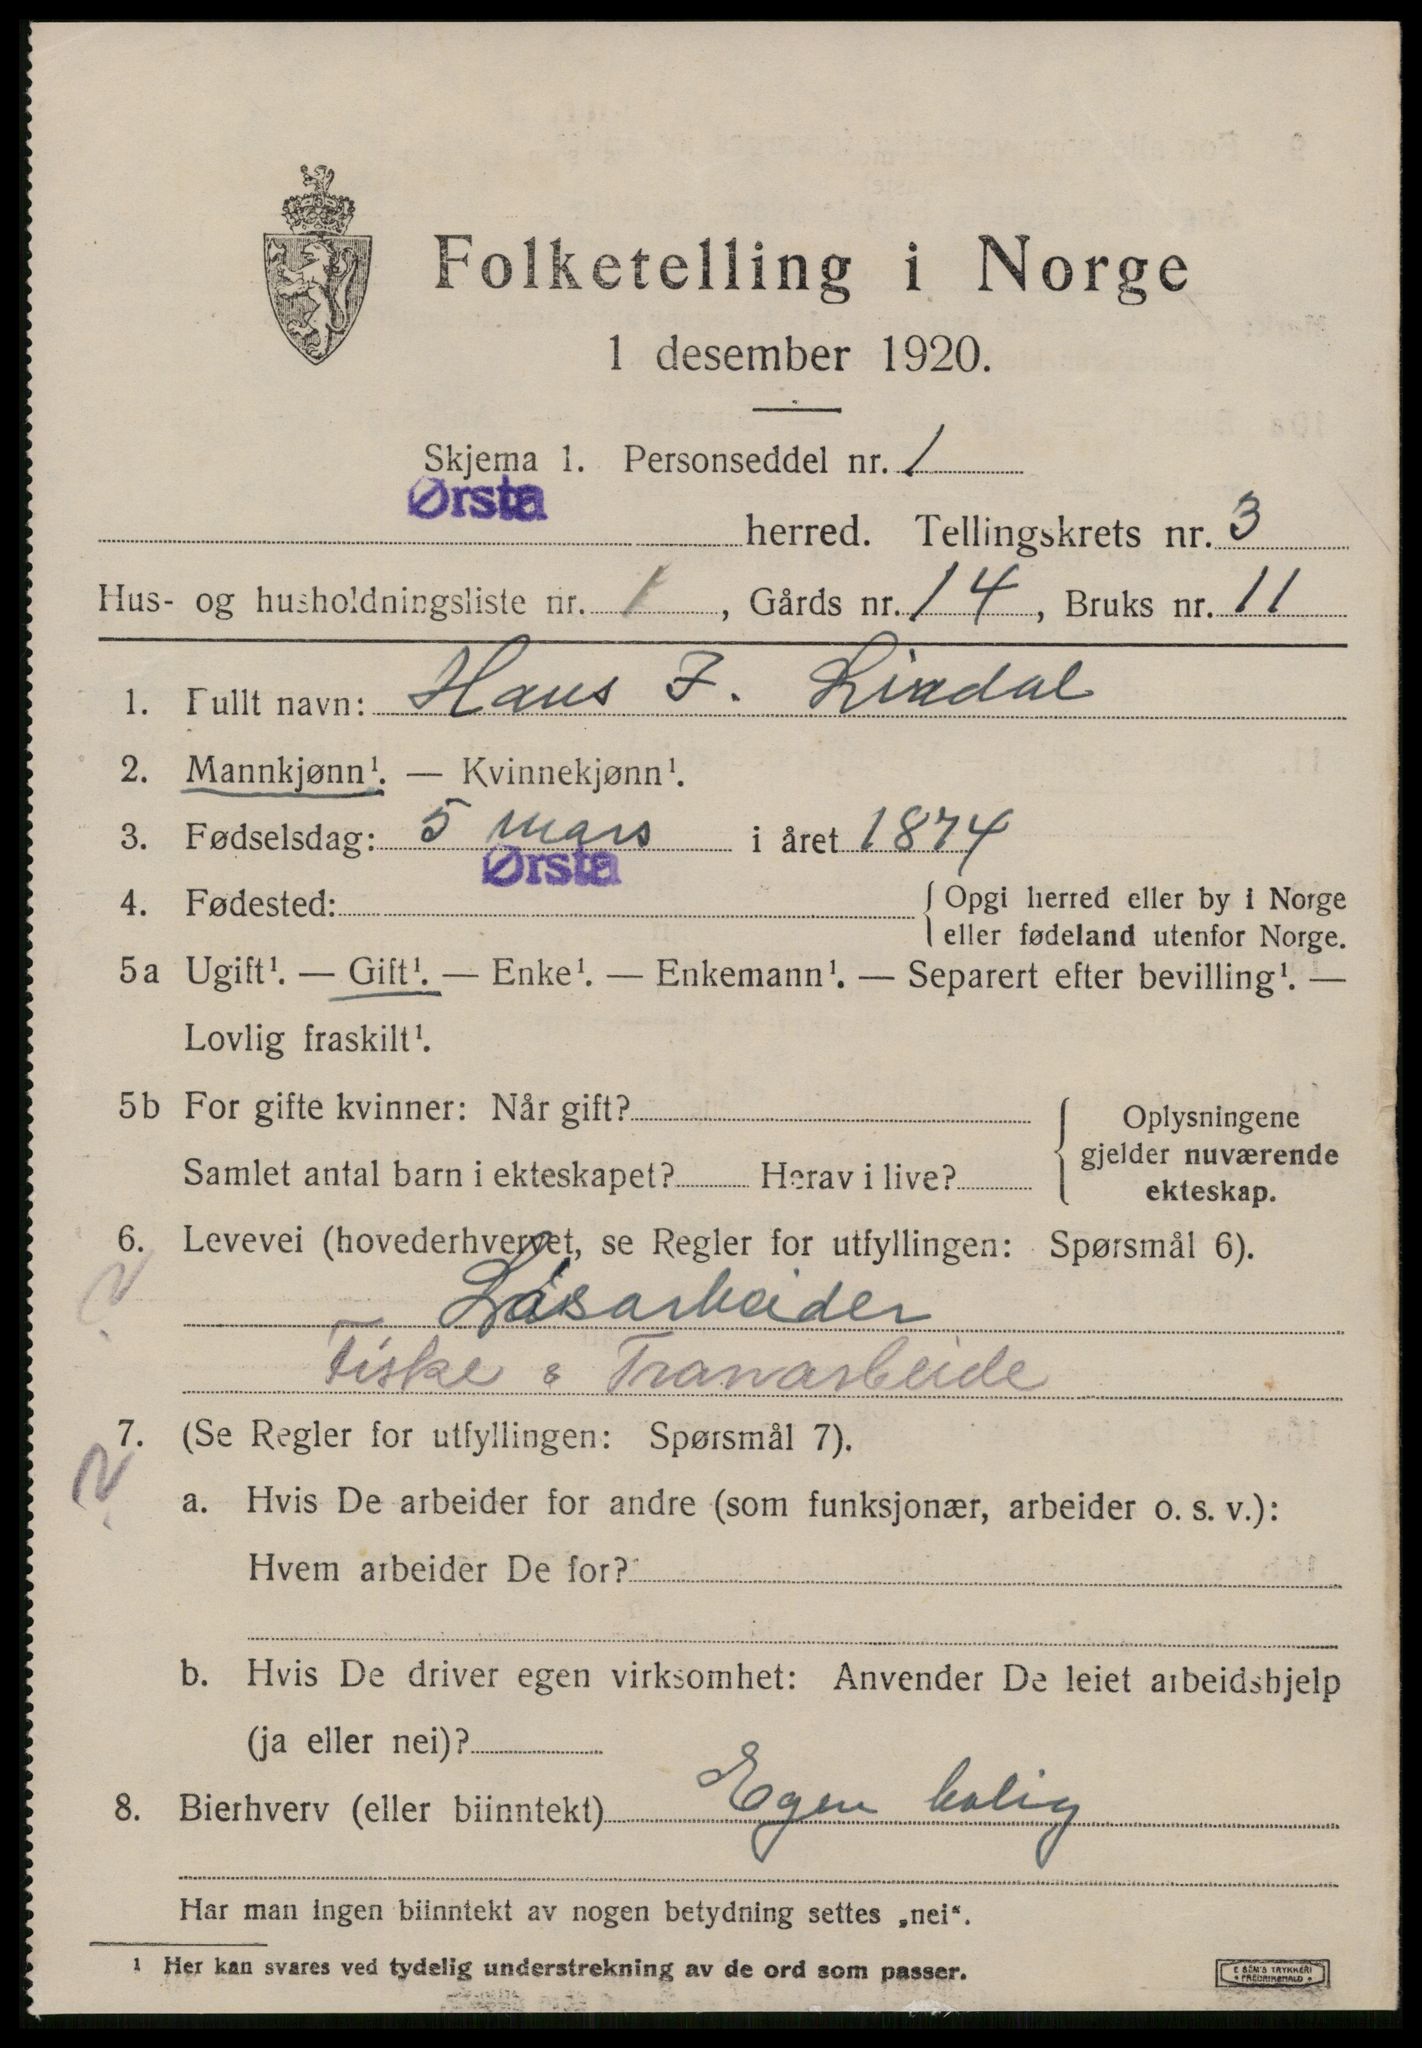 Folketelling i Norge
1 desember 1920.
Skjema 1. Personseddel nr. 1
Ørsta herred. Tellingskrets nr. 3
Hus- og husholdningsliste nr. 1, Gårds nr. 14, Bruks nr. 11
1. Fullt navn: Hans J. Lirdal
2. Mannkjønn¹. — Kvinnekjønn¹.
3. Fødselsdag: 5 mars i året 1874
4. Fødested: Ørsta { Opgi herred eller by i Norge
eller fødeland utenfor Norge.
5a Ugift¹. — Gift¹. — Enke¹. — Enkemann¹. — Separert efter bevilling¹. —
Lovlig fraskilt¹.
5b For gifte kvinner: Når gift?
Samlet antal barn i ekteskapet? Herav i live?
Oplysningene
gjelder nuværende
ekteskap.
6. Levevei (hovederhvervet, se Regler for utfyllingen: Spørsmål 6).
Løsarbeider
Fiske & Tranarbeide
7. (Se Regler for utfyllingen: Spørsmål 7).
a. Hvis De arbeider for andre (som funksjonær, arbeider o. s. v.):
Hvem arbeider De for?
b. Hvis De driver egen virksomhet: Anvender De leiet arbeidshjelp
(ja eller nei)?
8. Bierhverv (eller biinntekt) Egen bolig
Har man ingen biinntekt av nogen betydning settes „nei“.
¹ Her kan svares ved tydelig understrekning av de ord som passer.
E SEM'S TRYKKERI
FREDRIKSHALD